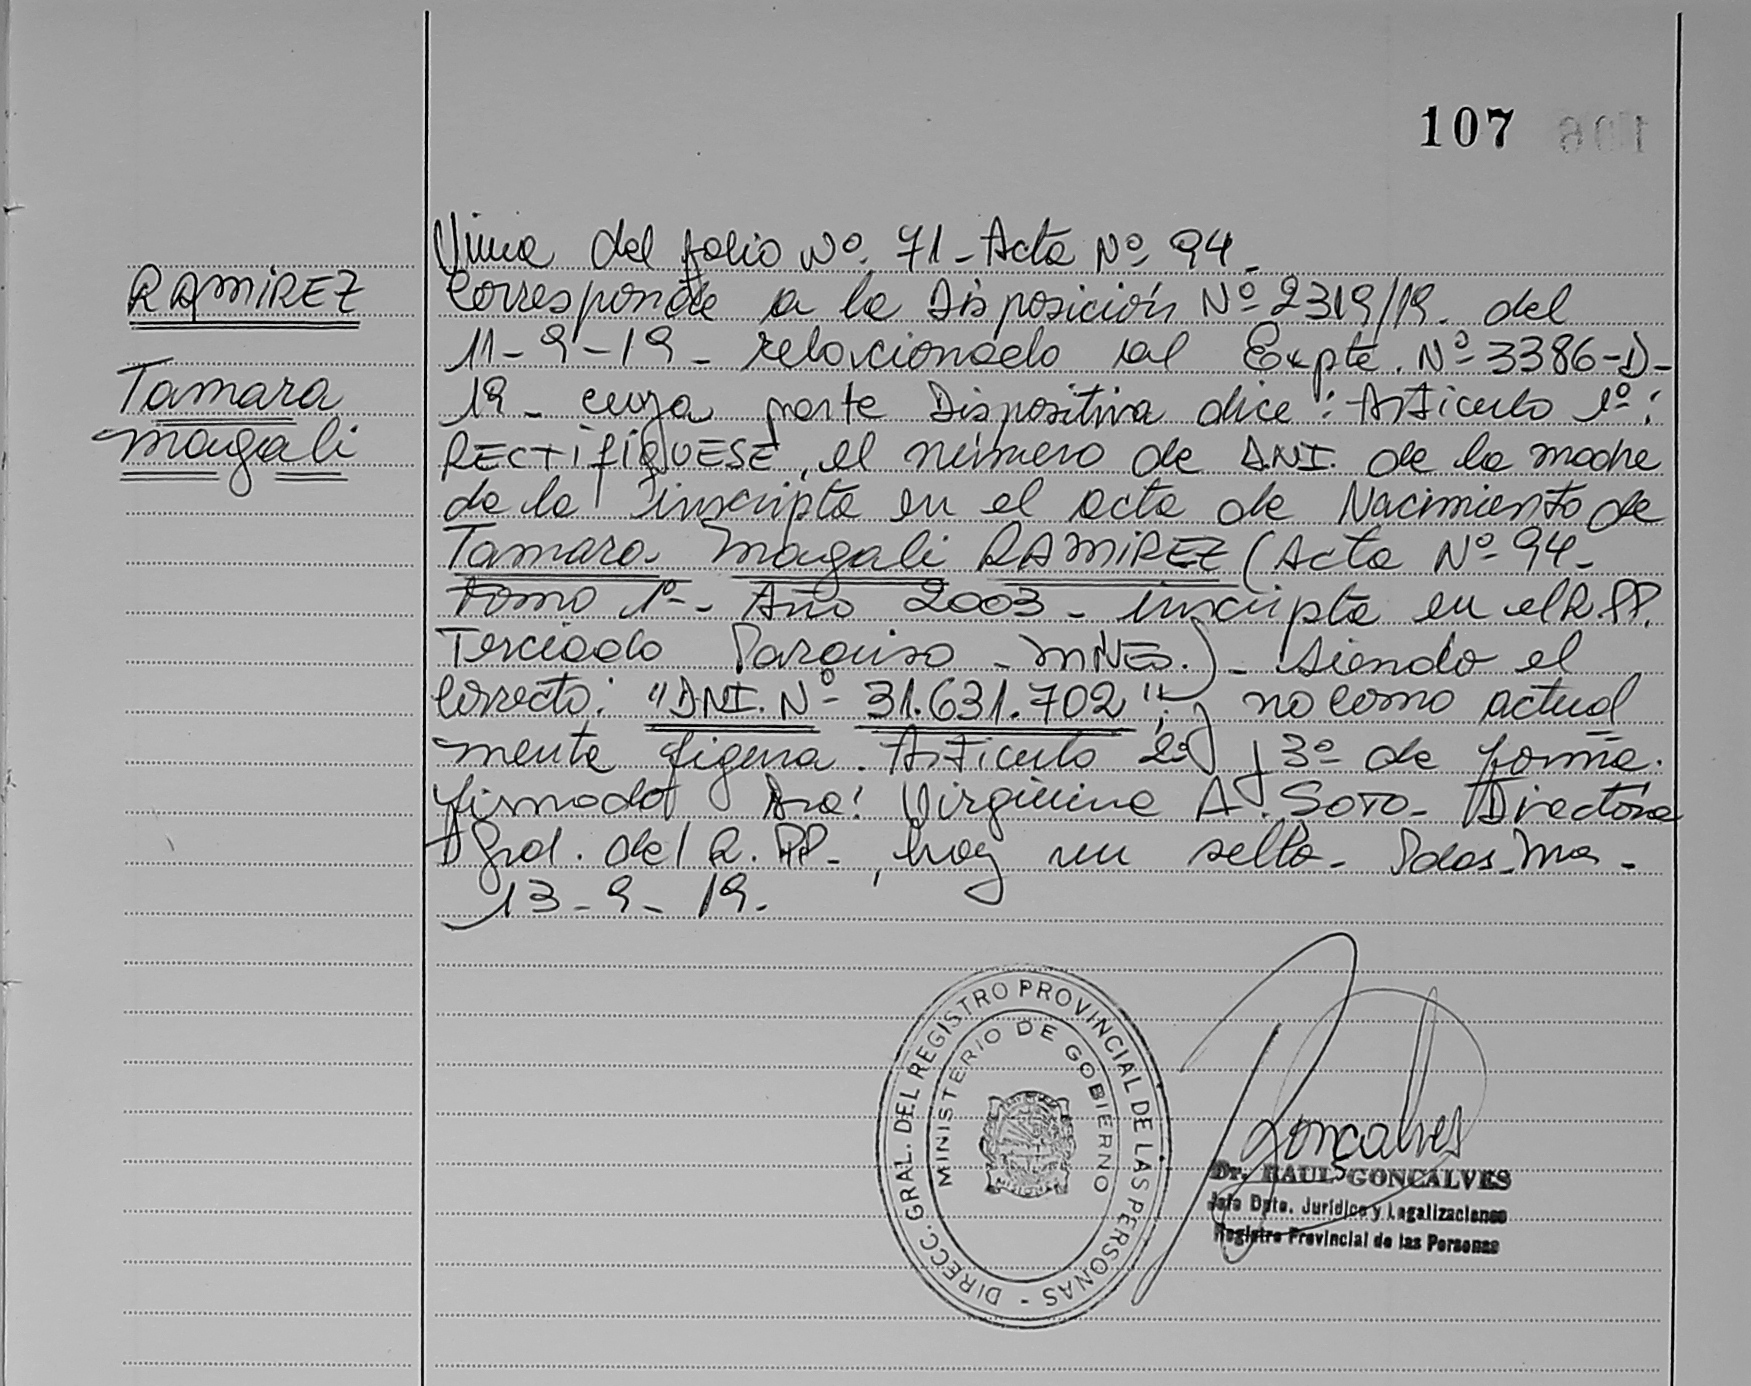 107
106
RAMIREZ
Tamara
Magali
Viene del folio Nº. 71 - Acta Nº 94 -
Corresponde a la Disposición Nº 2319/19. del
11-9-19 - relacionado al Expte. Nº 3386-D-
19 - cuya parte Dispositiva dice: Artículo 1º:
RECTIFIQUESE, el número de DNI. de la madre
de la inscripta en el acta de Nacimiento de
Tamara Magali RAMIREZ (Acta Nº 94 -
Tomo 1º - Año 2003 - inscripta en el R.PP.
Terciado Paraiso - MNES.) - siendo el
correcto: "DNI. Nº 31.631.702"; y no como actual
mente figura. Artículo 2º y 3º de forma.
firmado Dra: Virginia A. SOTO - Directora
Gral. del R.PP. -, hay un sello - Pdas. Mnes -
13 - 9 - 19.
DIRECC. GRAL. DEL REGISTRO PROVINCIAL DE LAS PERSONAS -
MINISTERIO DE GOBIERNO
MISIONES
Goncalves
Dr. RAUL GONCALVES
Jefe Dpto. Jurídico y Legalizaciones
Registro Provincial de las Personas